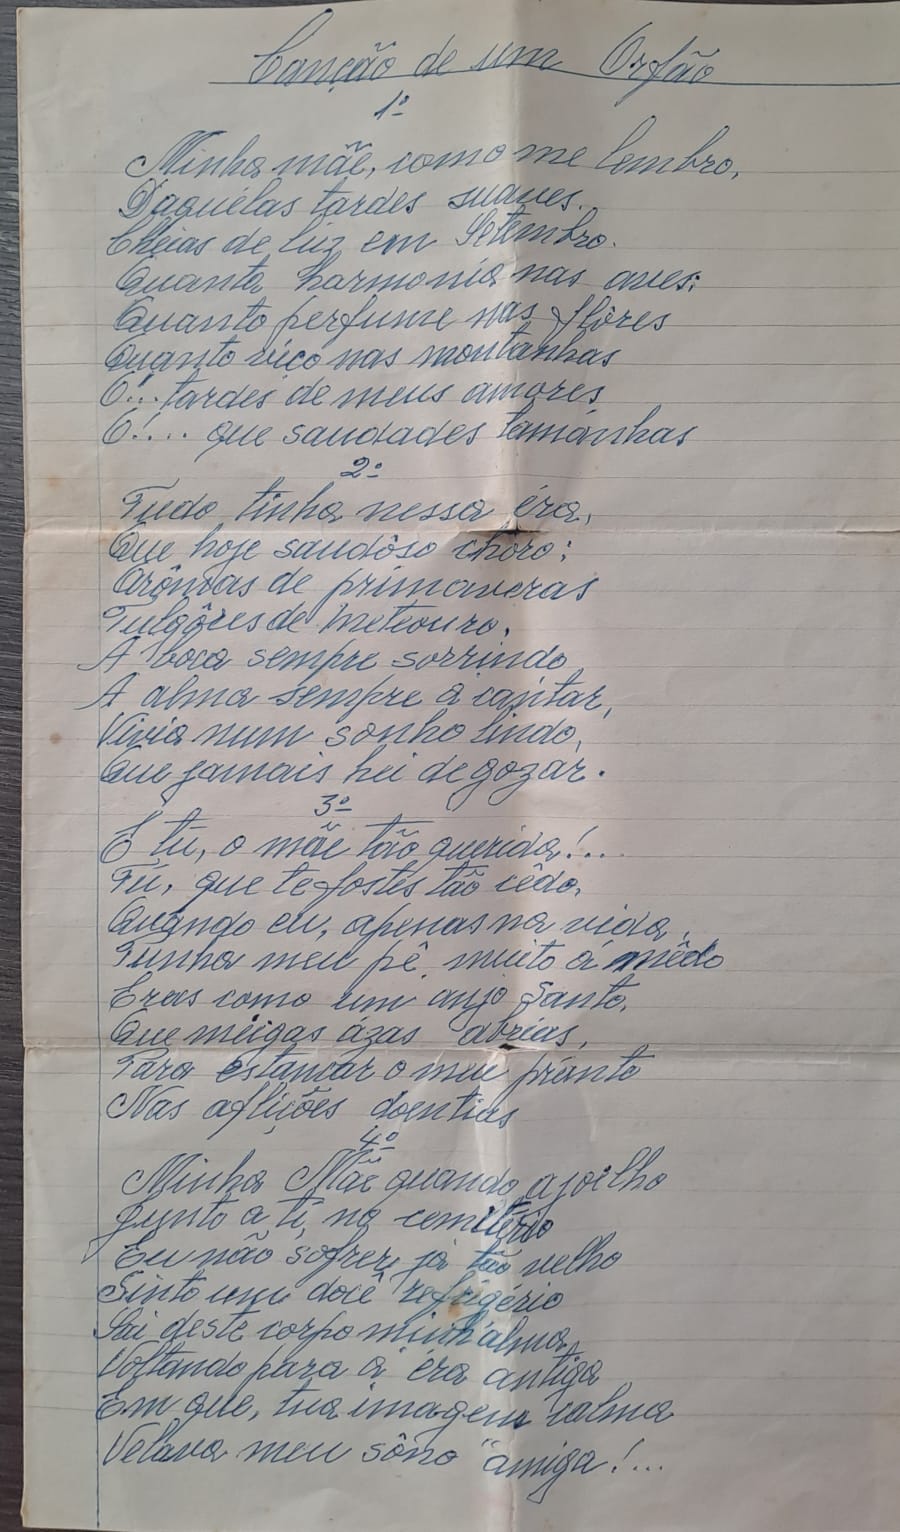 Canção de um Orfão
1º
Minha mãe, como me lembro,
Daquélas tardes suaves.
Cheias de luz em Setembro.
Quanta harmonia nas aves;
Quanto perfume nas flôres
Quanto viço nas montanhas
O!... tardes de meus amores
O!.... que saudades tamanhas
2º
Tudo tinha nessa éra,
Que hoje saudôso choro;
Arômas de primaveras
Fulgôres de meteouro.
A boca sempre sorrindo
A alma sempre a cantar,
Vivia num sonho lindo,
Que jamais hei de gozar.
3º
E tú, o mãe tão querida!...
Tú, que te fostes tão cêdo,
Quando eu, apenas na vida,
Tinha meu pé muito á mêdo
Eras como um anjo Santo,
Que meigas ázas abrias,
Para estancar o meu pranto
Nas aflições doentias
4º
Minha Mãe quando ajoelho
Junto a tí, no cemitério
Eu não sofrer já tão velho
Sinto um docê refrigério
Sai deste corpo minh'alma,
Voltando para a éra antiga
Em que, tua imagem calma
Velava meu sôno "amiga!...